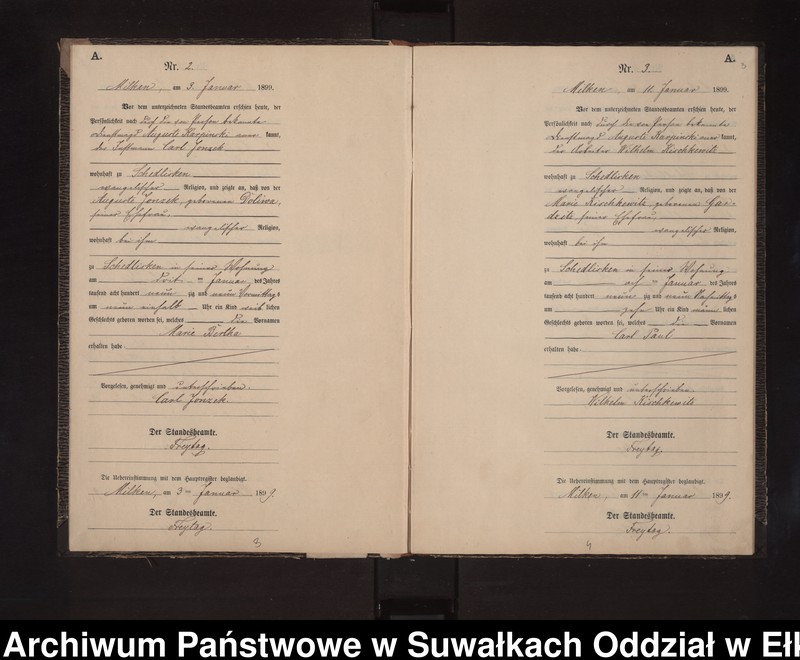 A.
Nr. 2.
Milken, am 3. Januar 1899.
Vor dem unterzeichneten Standesbeamten erschien heute, der
Persönlichkeit nach durch die von Person bekannte
Dienstmagd Auguste Karpinski aner kannt,
der Carl Jonzek
wohnhaft zu Schedlisken
evangelischer Religion, und zeigte an, daß von der
Auguste Jonzek geborenen Doliwa,
seiner Ehefrau,
evangelischer Religion,
wohnhaft bei ihm
zu Schedlisken in seiner Wohnung
am Januar des Jahres
tausend acht hundert neun zig und neun Vormittags
um neun einhalb Uhr ein Kind weib lichen
Geschlechts geboren worden sei, welches die Vornamen
Marie Bertha
erhalten habe.
Vorgelesen, genehmigt und unterschrieben.
Carl Jonzek.
Der Standesbeamte.
Freytag.
Die Uebereinstimmung mit dem Hauptregister beglaubigt.
Milken, am 3ten Januar 1899.
Der Standesbeamte.
Freytag.
3
A.
3
Nr. 3.
Milken, am 11. Januar 1899.
Vor dem unterzeichneten Standesbeamten erschien heute, der
Persönlichkeit nach durch die von Person bekannte
Dienstmagd Auguste Karpinski aner kannt,
der Arbeiter Wilhelm Kirschkewitz
wohnhaft zu Schedlisken
evangelischer Religion, und zeigte an, daß von der
Marie Kirschkewitz geborenen
seiner Ehefrau
evangelischer Religion,
wohnhaft bei ihm
zu Schedlisken in seiner Wohnung
am Januar des Jahres
tausend acht hundert neun zig und neun Nachmittags
um zehn Uhr ein Kind männ lichen
Geschlechts geboren worden sei, welches die Vornamen
Carl Paul
erhalten habe.
Vorgelesen, genehmigt und unterschrieben
Wilhelm Kirschkewitz
Der Standesbeamte.
Freytag.
Die Uebereinstimmung mit dem Hauptregister beglaubigt.
Milken, am 11ten Januar 1899.
Der Standesbeamte.
Freytag.
4
Archiwum Państwowe w Suwałkach Oddział w Ełk